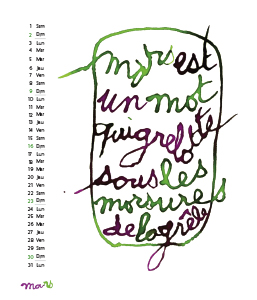 1 Sam
2 Dim
3 Lun
4 Mar
5 Mer
6 Jeu
7 Ven
8 Sam
9 Dim
10 Lun
11 Mar
12 Mer
13 Jeu
14 Ven
15 Sam
16 Dim
17 Lun
18 Mar
19 Mer
20 Jeu
21 Ven
22 Sam
23 Dim
24 Lun
25 Mar
26 Mer
27 Jeu
28 Ven
29 Sam
30 Dim
31 Lun
mars
Mars est
un mot
qui grelotte
sous les
morsures
de la grêle